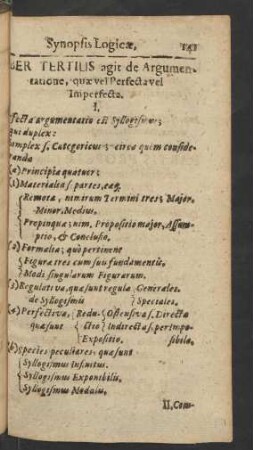 Synopsis Logicæ. 141
BER TERTIUS agit de Argumen-
tatione, quæ vel Perfecta vel
Imperfecta.
I.
fecta argumentatio est Syllogismus;
que duplex:
implex s. Categoricus; circa quem conside-
randa
(a) Principia quatuor;
(b) Materialia s. partes, eaq;
Remotæ, nimirum Termini tres; Major,
Minor, Medius.
Propinquæ; nim, Propositio major, Assum-
ptio, & Conclusio.
(2) Formalia; quò pertinent
Figuræ tres cum suis fundamentis.
Modi singularum Figurarum.
(3) Regulativa, quæ sunt regulæ Generales.
de Syllogismis Speciales.
(4) Perfectiva; Redu- Ostensiva s. Directa
quæ sunt ctio Indirecta s. per impo-
Expositio. sibile.
(6) Species peculiares; quæ sunt
Syllogismus Infinitus.
Syllogismus Exponibilis.
Syllogismus Modalis.
II. Com-